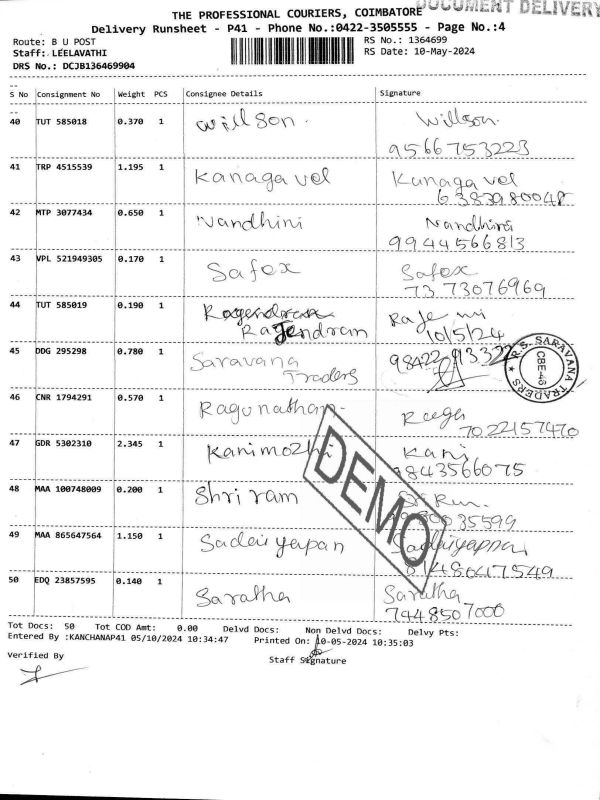 DOCUMENT DELIVERY
THE PROFESSIONAL COURIERS, COIMBATORE
Delivery Runsheet - P41 - Phone No.:0422-3505555 - Page No.:4
Route: B U POST RS No.: 1364699
Staff: LEELAVATHI RS Date: 10-May-2024
DRS No.: DCJB136469904
S No Consignment No Weight PCS Consignee Details Signature
40 TUT 585018 0.370 1 Willson. Willson.
9566753223
41 TRP 4515539 1.195 1 Kanaga vel Kanaga vel
6383980048
42 MTP 3077434 0.650 1 Nandhini Nandhini
9944566813
43 VPL 521949305 0.170 1 Safex Safex
73 73076969
44 TUT 585019 0.190 1 Ragendran
RaJendram 10/5/24
45 DDG 295298 0.780 1 Saravana
Traders
R.S. SARAVANA TRADERS
CBE-43
46 CNR 1794291 0.570 1 Ragunathan
7022157470
47 GDR 5302310 2.345 1 Kanimozhi Kani
9843566075
48 MAA 100748009 0.200 1 Shri ram
49 MAA 865647564 1.150 1 Sadaiyapan Sadaiyappan
50 EDQ 23857595 0.140 1 Saratha Saratha
7948507000
DEMO
Tot Docs: 50 Tot COD Amt: 0.00 Delvd Docs: Non Delvd Docs: Delvy Pts:
Entered By :KANCHANAP41 05/10/2024 10:34:47 Printed On: 10-05-2024 10:35:03
Verified By Staff Signature